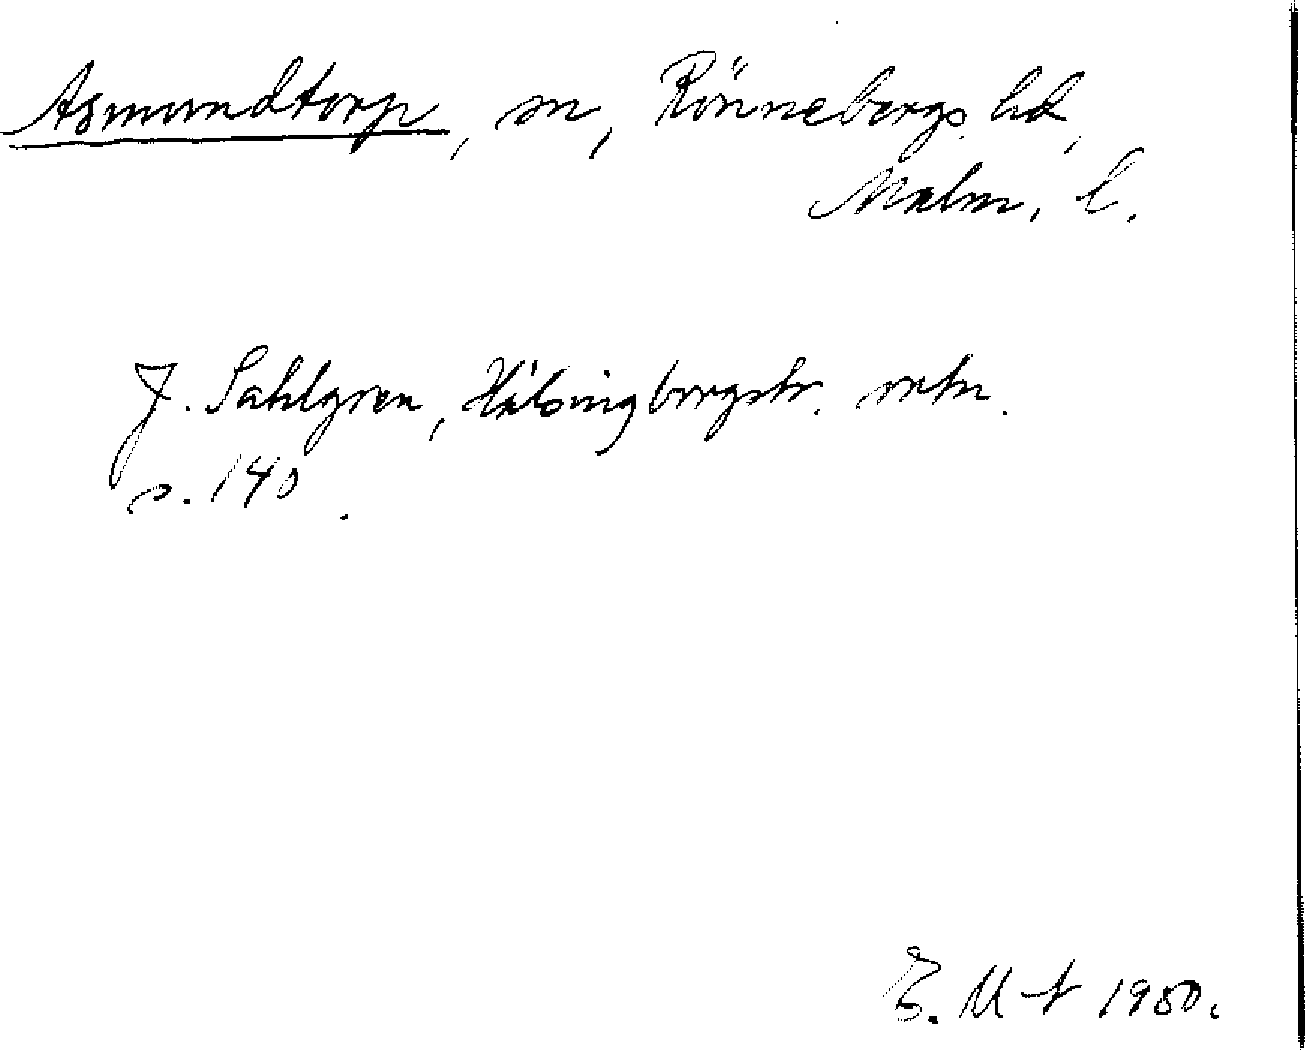 Asmundtorp, sn, Rönnebergs hd,
Malm. l.
J. Sahlgren, Hälsingborgstr. ortn.
s. 140.
E. M-t 1950.